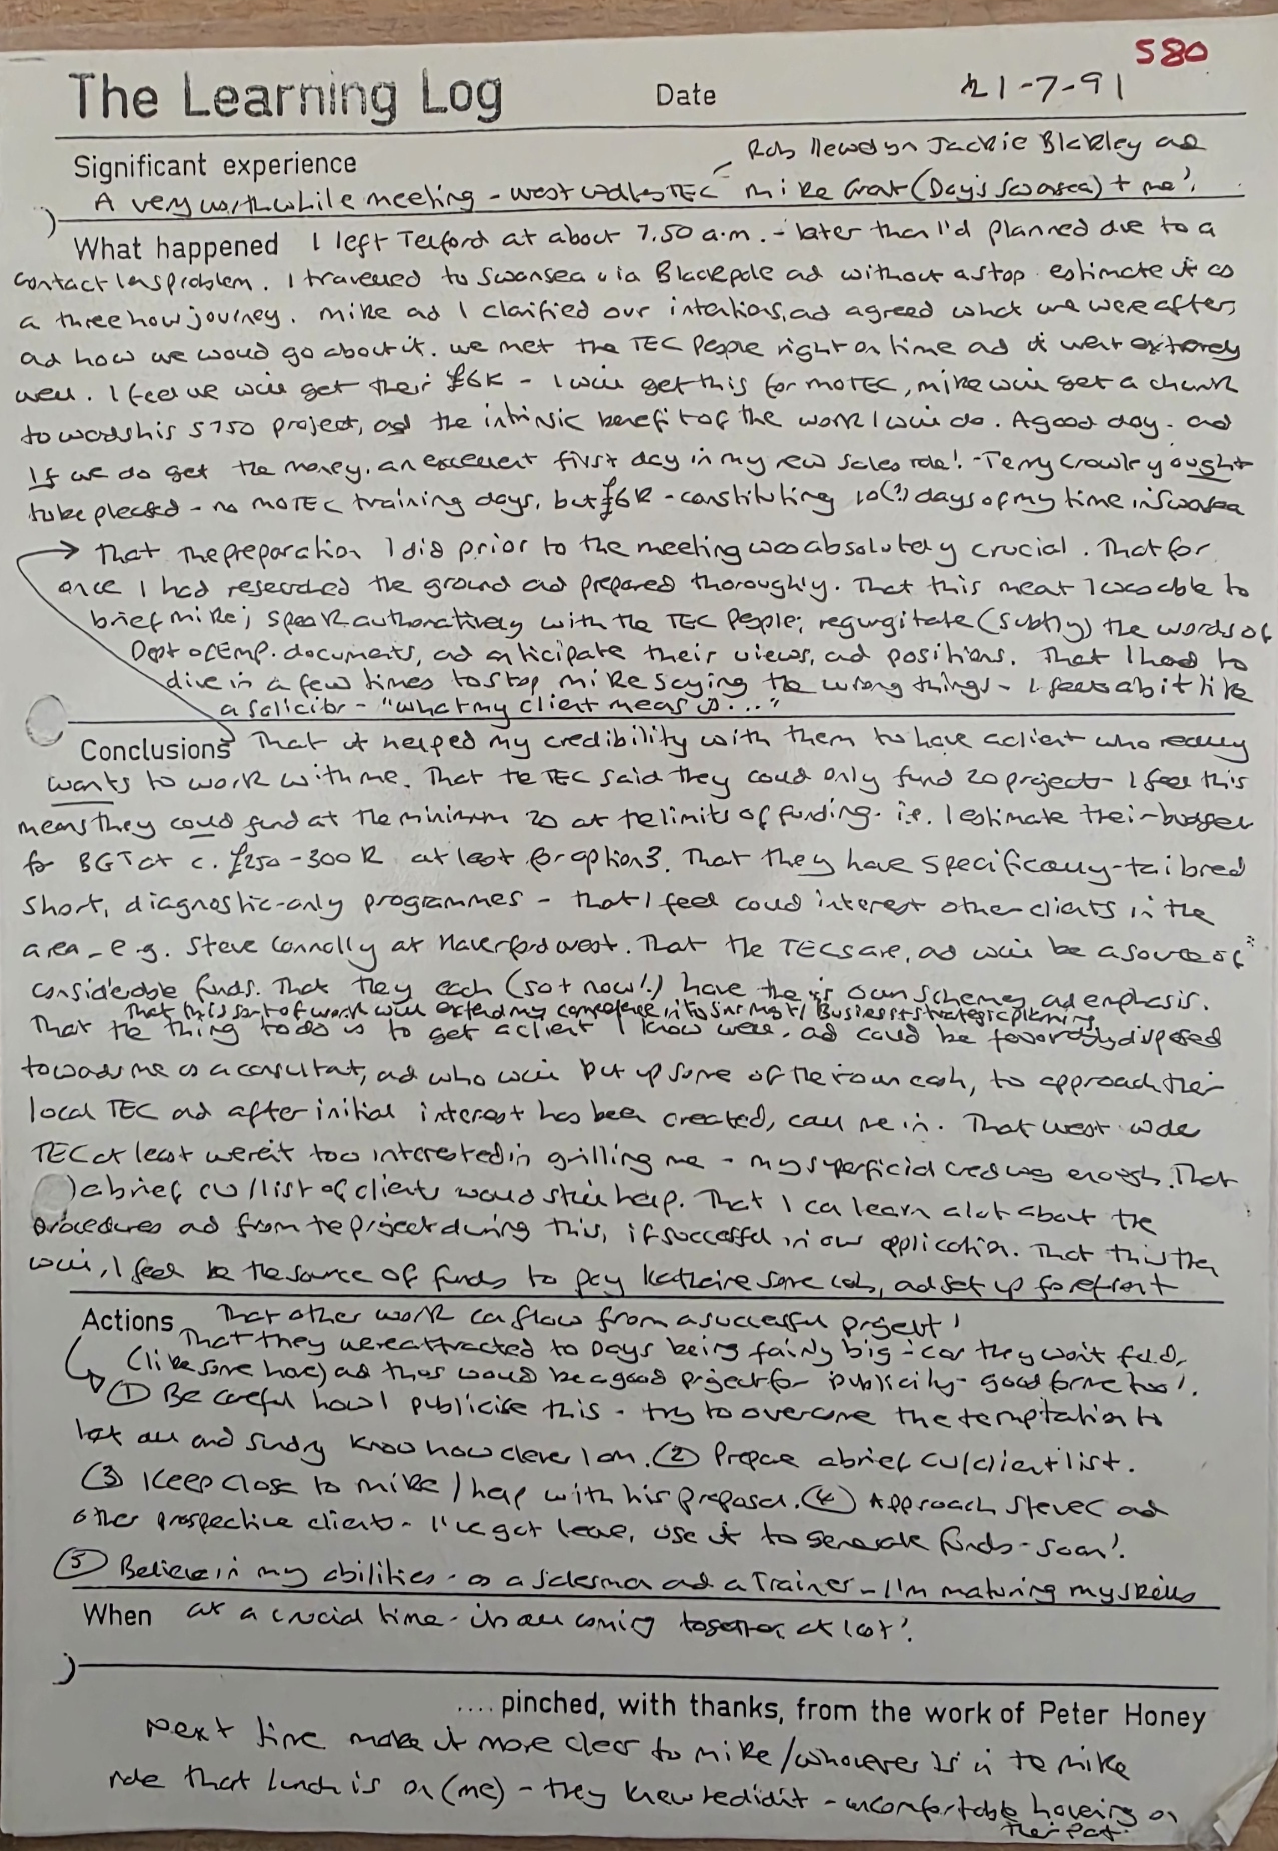 580
The Learning Log Date 21-7-91
Rob Llewelyn Jackie Blakley ad
Significant experience
A very worthwhile meeting - West Wales TEC mike Grat (Day's Swansea) + me!
What happened I left Telford at about 7.50 a.m. - later than I'd planned due to a
contact lens problem. I travelled to Swansea via Blackpole ad without a stop estimate it as
a three hour journey. Mike ad I clarified our intentions, ad agreed what we were after,
ad how we would go about it. We met the TEC people right on time ad it went extremely
well. I feel we will get their £6K - I will get this for MOTEC, mike will get a chunk
towards his 5750 project, ad the intrinsic benefit of the work I will do. A good day. ad
If we do get the money, an excellent first day in my new sales role! - Terry Crowley ought
to be pleased - no MOTEC training days, but £6K - constituting 10(?) days of my time in Swansea
That the preparation I did prior to the meeting was absolutely crucial. That for
once I had researched the ground ad prepared thoroughly. That this meant I was able to
brief Mike; speak authoratively with the TEC people; regurgitate (subtly) the words of
Dept of Emp. documents, ad anticipate their views, ad positions. That I had to
dive in a few times to stop Mike saying the wrong things - I feel a bit like
a solicitor - "what my client means is..."
Conclusions That it helped my credibility with them to have a client who really
wants to work with me. That the TEC said they could only fund 20 projects - I feel this
means they could fund at the minimum 20 at the limits of funding. i.e. I estimate their budget
for BGT at c. £250-300K at least for option 3. That they have specifically-tailored
short, diagnostic-only programmes - that I feel could interest other clients in the
area - e.g. Steve Connolly at Haverfordwest. That the TECs are, ad will be a source of
considerable funds. That they each (so + now!) have their own schemes, ad emphasis.
That this sort of work will extend my competence into Business + strategic planning
That the thing to do is to get a client I know well, ad could be favourably disposed
towards me as a consultant, ad who will put up some of their own cash, to approach their
local TEC ad after initial interest has been created, call me in. That West Wales
TEC at least weren't too interested in grilling me - my superficial cred was enough. That
a brief cv/list of clients would still help. That I can learn a lot about the
procedures ad from the project during this, if successful in our application. That this then
will, I feel be the source of funds to pay some cash, ad set up forefront
Actions That other work can flow from a successful project!
That they were attracted to Days being fairly big - car they won't fund,
(like some have) ad thus would be a good project for publicity - good for me too!
(1) Be careful how I publicise this - try to overcome the temptation to
let all and sundry know how clever I am. (2) Prepare a brief CV/client list.
(3) Keep close to Mike / help with his proposal. (4) Approach Steve C ad
other prospective clients - I've got leave, use it to generate funds - soon!
(5) Believe in my abilities - as a salesman ad a Trainer - I'm maturing my skills
When at a crucial time - it's all coming together at last!
.... pinched, with thanks, from the work of Peter Honey
Next time make it more clear to Mike/whoever is in the Mike
role that lunch is on (me) - they knew he did it - uncomfortable having on
their part.